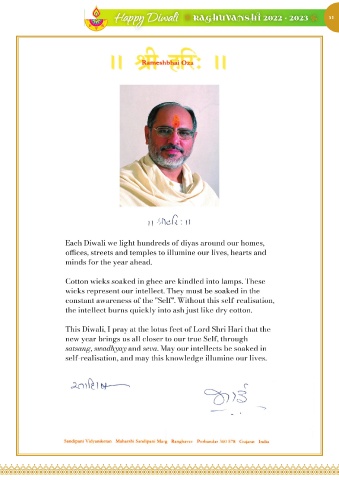 Happy Diwali RAGHUVANSHI 2022 - 2023
॥ श्री हरिः ॥
Rameshbhai Oza
॥ श्रीहरिः ॥
Each Diwali we light hundreds of diyas around our homes,
offices, streets and temples to illumine our lives, hearts and
minds for the year ahead.
Cotton wicks soaked in ghee are kindled into lamps. These
wicks represent our intellect. They must be soaked in the
constant awareness of the "Self". Without this self-realisation,
the intellect burns quickly into ash just like dry cotton.
This Diwali, I pray at the lotus feet of Lord Shri Hari that the
new year brings us all closer to our true Self, through
satsang, swadhyay and seva. May our intellects be soaked in
self-realisation, and may this knowledge illumine our lives.
Sandipani Vidyaniketan Maharshi Sandipani Marg Ranghavav Porbandar 360 578 Gujarat India